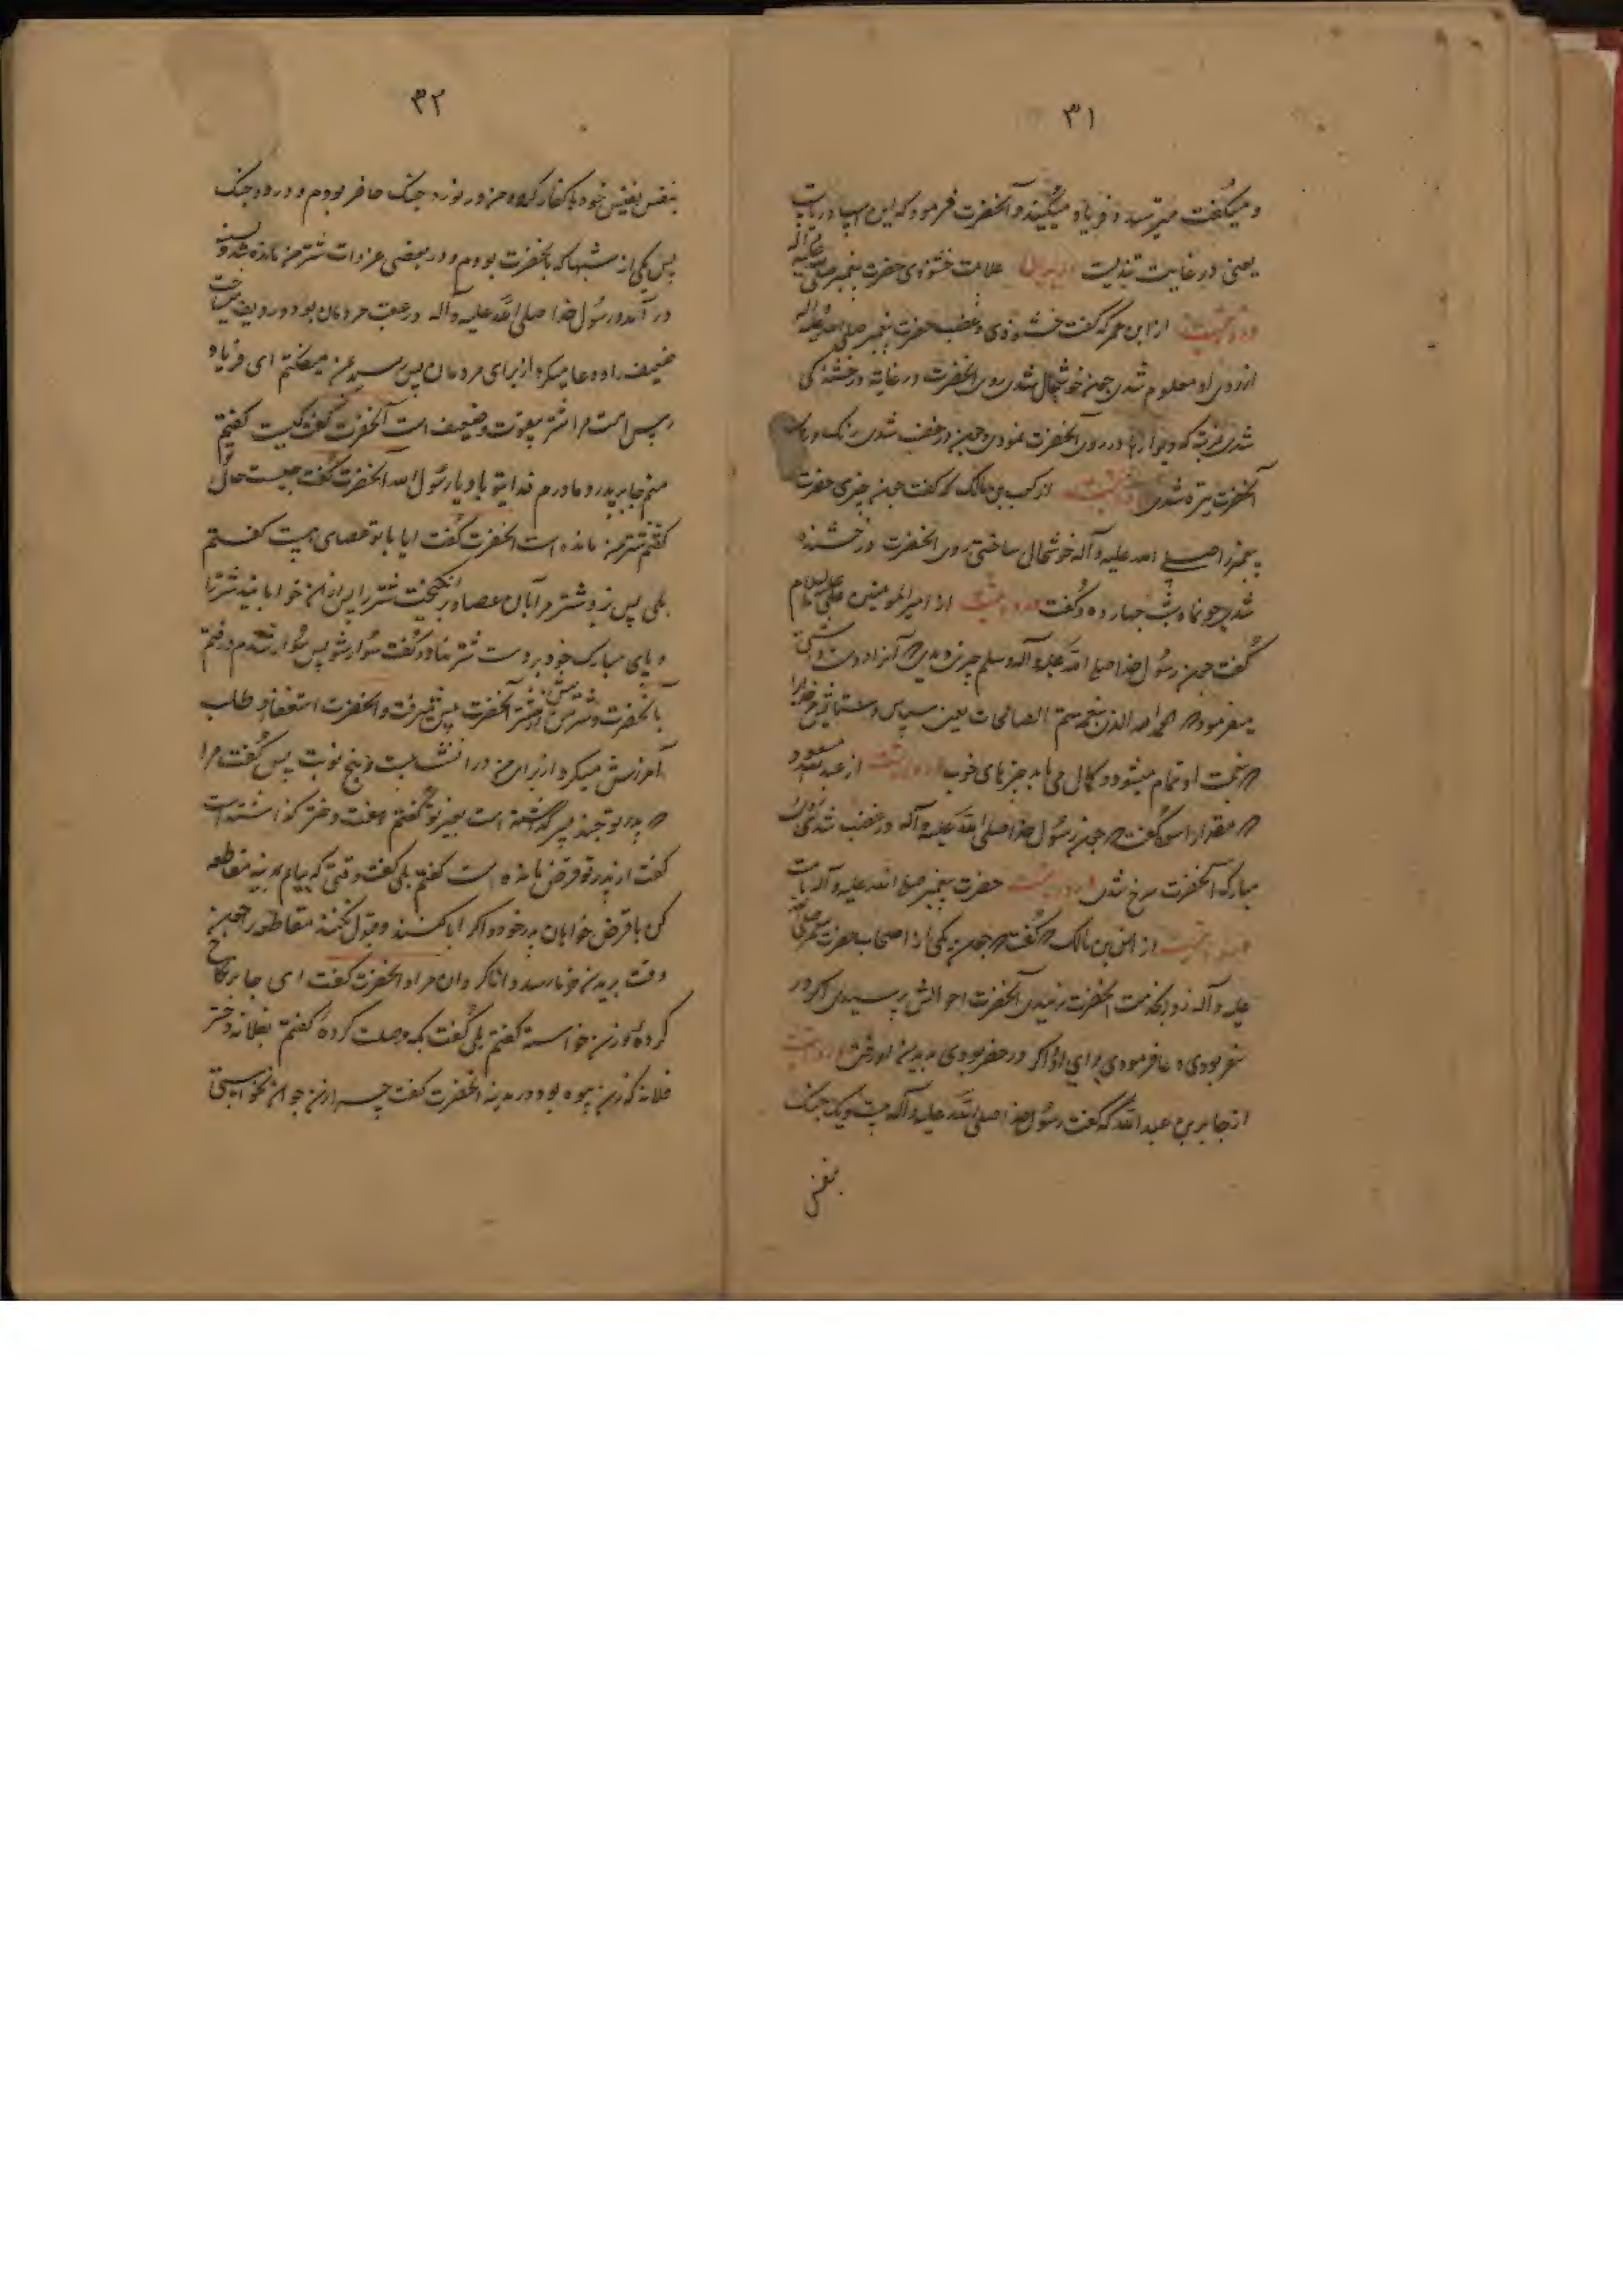 ۳۱
و میگفت میترسد و فریاد میکند و آنحضرت فرمود که این اسپ دریاست
یعنی در غایت تندیست در بیان علامت خشنودی حضرت پیغمبر صلی الله علیه و آله
در روایتست از ابن عمر که گفت خشنودی و غضب حضرت پیغمبر صلی الله علیه و آله
از روی او معلوم شدی چون خوشحال شدی روی آنحضرت در غایة درخشندگی
شدی که دیوارها در روی آنحضرت نمودی و چون در غضب شدی رنگ روی
آنحضرت تیره شدی روایتست از کعب بن مالک که گفت چون چیزی حضرت
پیغمبر را صلی الله علیه و آله خوشحال ساختی روی آنحضرت درخشنده
شدی چو ماه شب چهارده و گفت روایتست از امیر المؤمنین علی علیه السلام
گفت چون رسول خدا صلی الله علیه و آله وسلم چیزی دیدی که آنرا دوست داشتی
میفرمود که الحمد لله الذی بنعمته تتم الصالحات یعنی سپاس و ستایش مر خدا را
که بنعمت او تمام میشود و کمال می یابد چیزهای خوب روایتست از عبد الله مسعود
که مقداد اسود گفت که چون رسول خدا صلی الله علیه و آله در غضب شدی روی
مبارک آنحضرت سرخ شدی در روایتست حضرت پیغمبر صلی الله علیه و آله
روایتست از انس بن مالک که گفت که چون یکی از اصحاب حضرت پیغمبر صلی الله
علیه و آله زود بخدمت آنحضرت نرسیدی آنحضرت احوالش پرسیدی اگر در
سفر بودی دعا فرمودی برای او و اگر در حضر بودی بدیدن او رفتی روایتست
از جابر بن عبد الله که گفت رسول خدا صلی الله علیه و آله بیست و یک جنک
بنفس
۳۲
بنفس نفیس خود با کفار کرده من در نوزده جنک حاضر بودم و در دو جنک
پس یکی از شبها که با آنحضرت بودم و در بعضی غزوات شتر من مانده شد و
در آمد و رسول خدا صلی الله علیه و آله در عقب مردمان بود و ردیف میساخت
ضعیف را و دعا میکرد از برای مردمان پس رسید بمن میگفتم ای فریاد
رس است مرا شتر بیقوت و ضعیف است آنحضرت گفت کیست گفتم
منم جابر پدر و مادرم فدای تو باد یا رسول الله آنحضرت گفت چیست حال تو
گفتم شتر من مانده است آنحضرت گفت ایا با تو عصای هست گفتم
بلی پس زد شتر مرا بآن عصا و بر انگیخت شتر را پس از آن خوابانید شتر را
و پای مبارک خود بر دست شتر نهاد و گفت سوار شو پس سوار شدم و رفتم
با آنحضرت و شتر من از شتر آنحضرت پیش میرفت و آنحضرت استغفار و طلب
آمرزش میکرد از برای من در آنشب بیست و پنج نوبت پس گفت مرا
که پدر تو چند پسر گذاشته است بغیر تو گفتم هفت دختر گذاشته است
گفت از پدر تو قرض مانده است گفتم بلی گفت وقتی که بیایم مدینه مقاطعه
کن با قرض خواهان پدر خود و اگر ابا کنند و قبول نکنند مقاطعه را چون
وقت بریدن خرما رسد دانا گردان مرا و آنحضرت گفت ای جابر نکاح
کرده و زن خواسته گفتم بلی گفت بکه وصلت کرده گفتم بفلانه دختر
فلانه که زن بیوه بود در مدینه آنحضرت گفت چرا زن جوان نخواستی